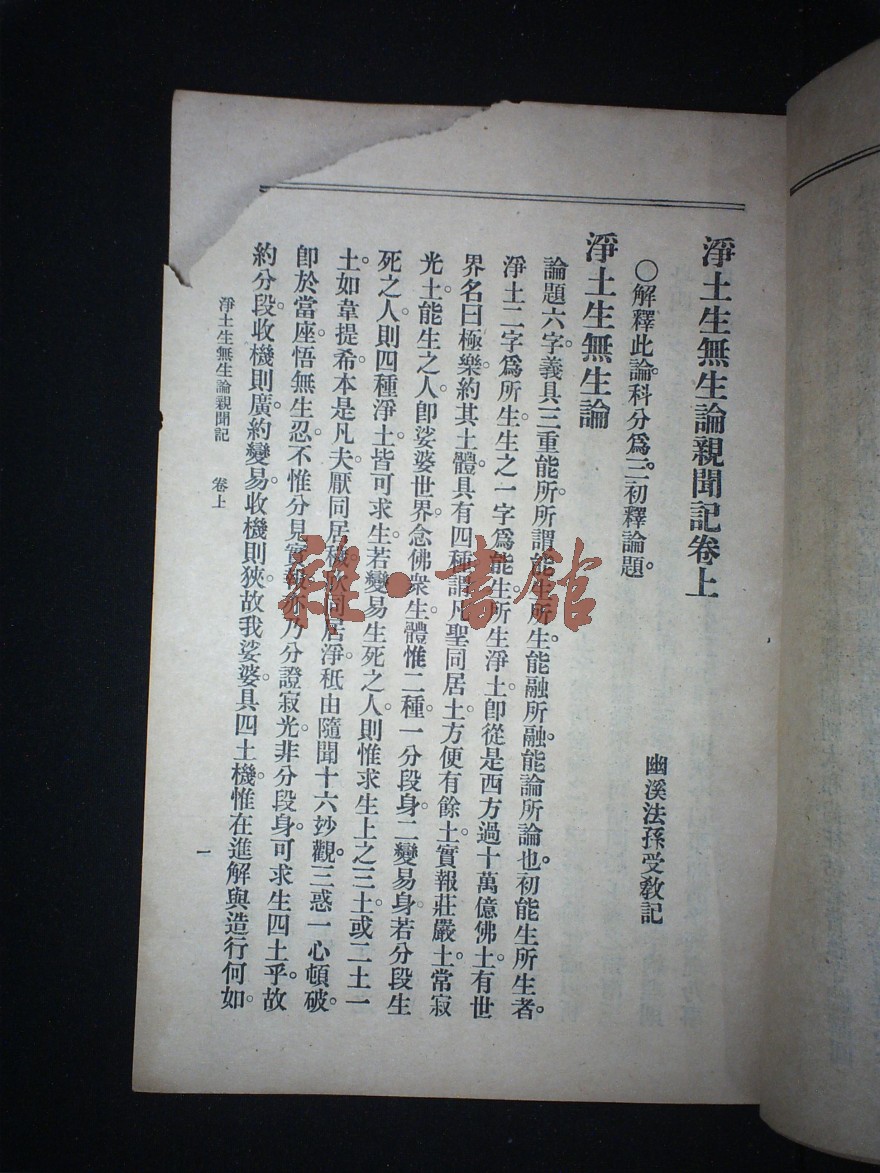 淨土生無生論親聞記卷上
幽溪法孫受教記
○解釋此論。科分爲三。初釋論題。
淨土生無生論
論題六字。義具三重能所。所謂能生所生。能融所融。能論所論也。初能生所生者。
淨土二字爲所生。生之一字爲能生。所生淨土。卽從是西方過十萬億佛土。有世
界名曰極樂。約其土體。具有四種。謂凡聖同居土。方便有餘土。實報莊嚴土。常寂
光土。能生之人。卽娑婆世界。念佛衆生。體惟二種。一分段身。二變易身。若分段生
死之人。則四種淨土。皆可求生。若變易生死之人。則惟求生上之三土。或二土一
土。如韋提希。本是凡夫。厭同居穢。欣同居淨。秖由隨聞十六妙觀。三惑一心頓破。
卽於當座。悟無生忍。不惟分見實報。亦乃分證寂光。非分段身。可求生四土乎。故
約分段。收機則廣。約變易。收機則狹。故我娑婆。具四土機。惟在進解與造行何如。
淨土生無生論親聞記 卷上
一
雜·書館